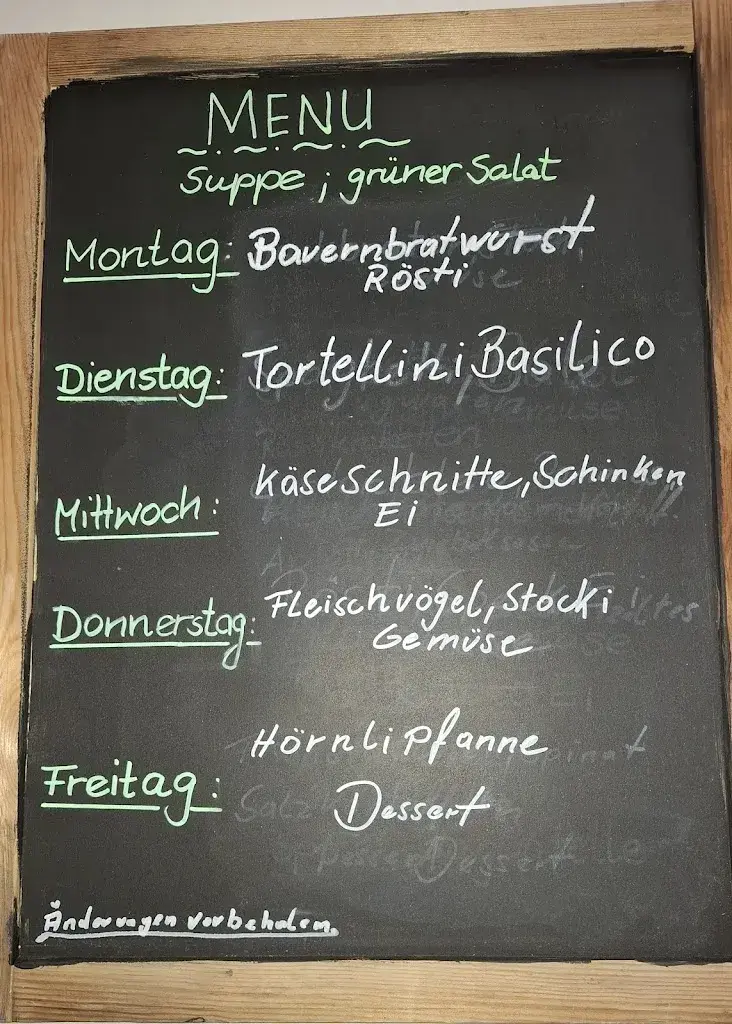 MENU
Suppe ; grüner Salat
Montag: Bauernbratwurst
Rösti
Dienstag: Tortellini Basilico
Mittwoch: Käseschnitte, Schinken
Ei
Donnerstag: Fleischvögel, Stocki
Gemüse
Hörnlipfanne
Freitag:
Dessert
Änderungen vorbehalten.